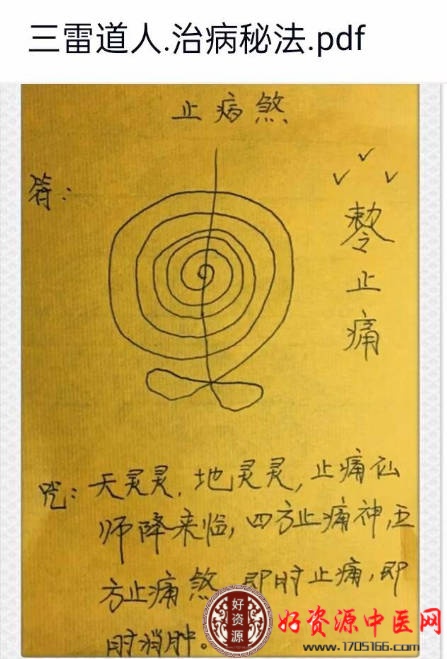 三雷道人.治病秘法.pdf
止病煞
符:
止痛
咒:天灵灵,地灵灵,止痛仙
师降来临,四方止痛神,五
方止痛煞,即时止痛,即
时消肿。
好资源
好资源中医网
www.1705166.com